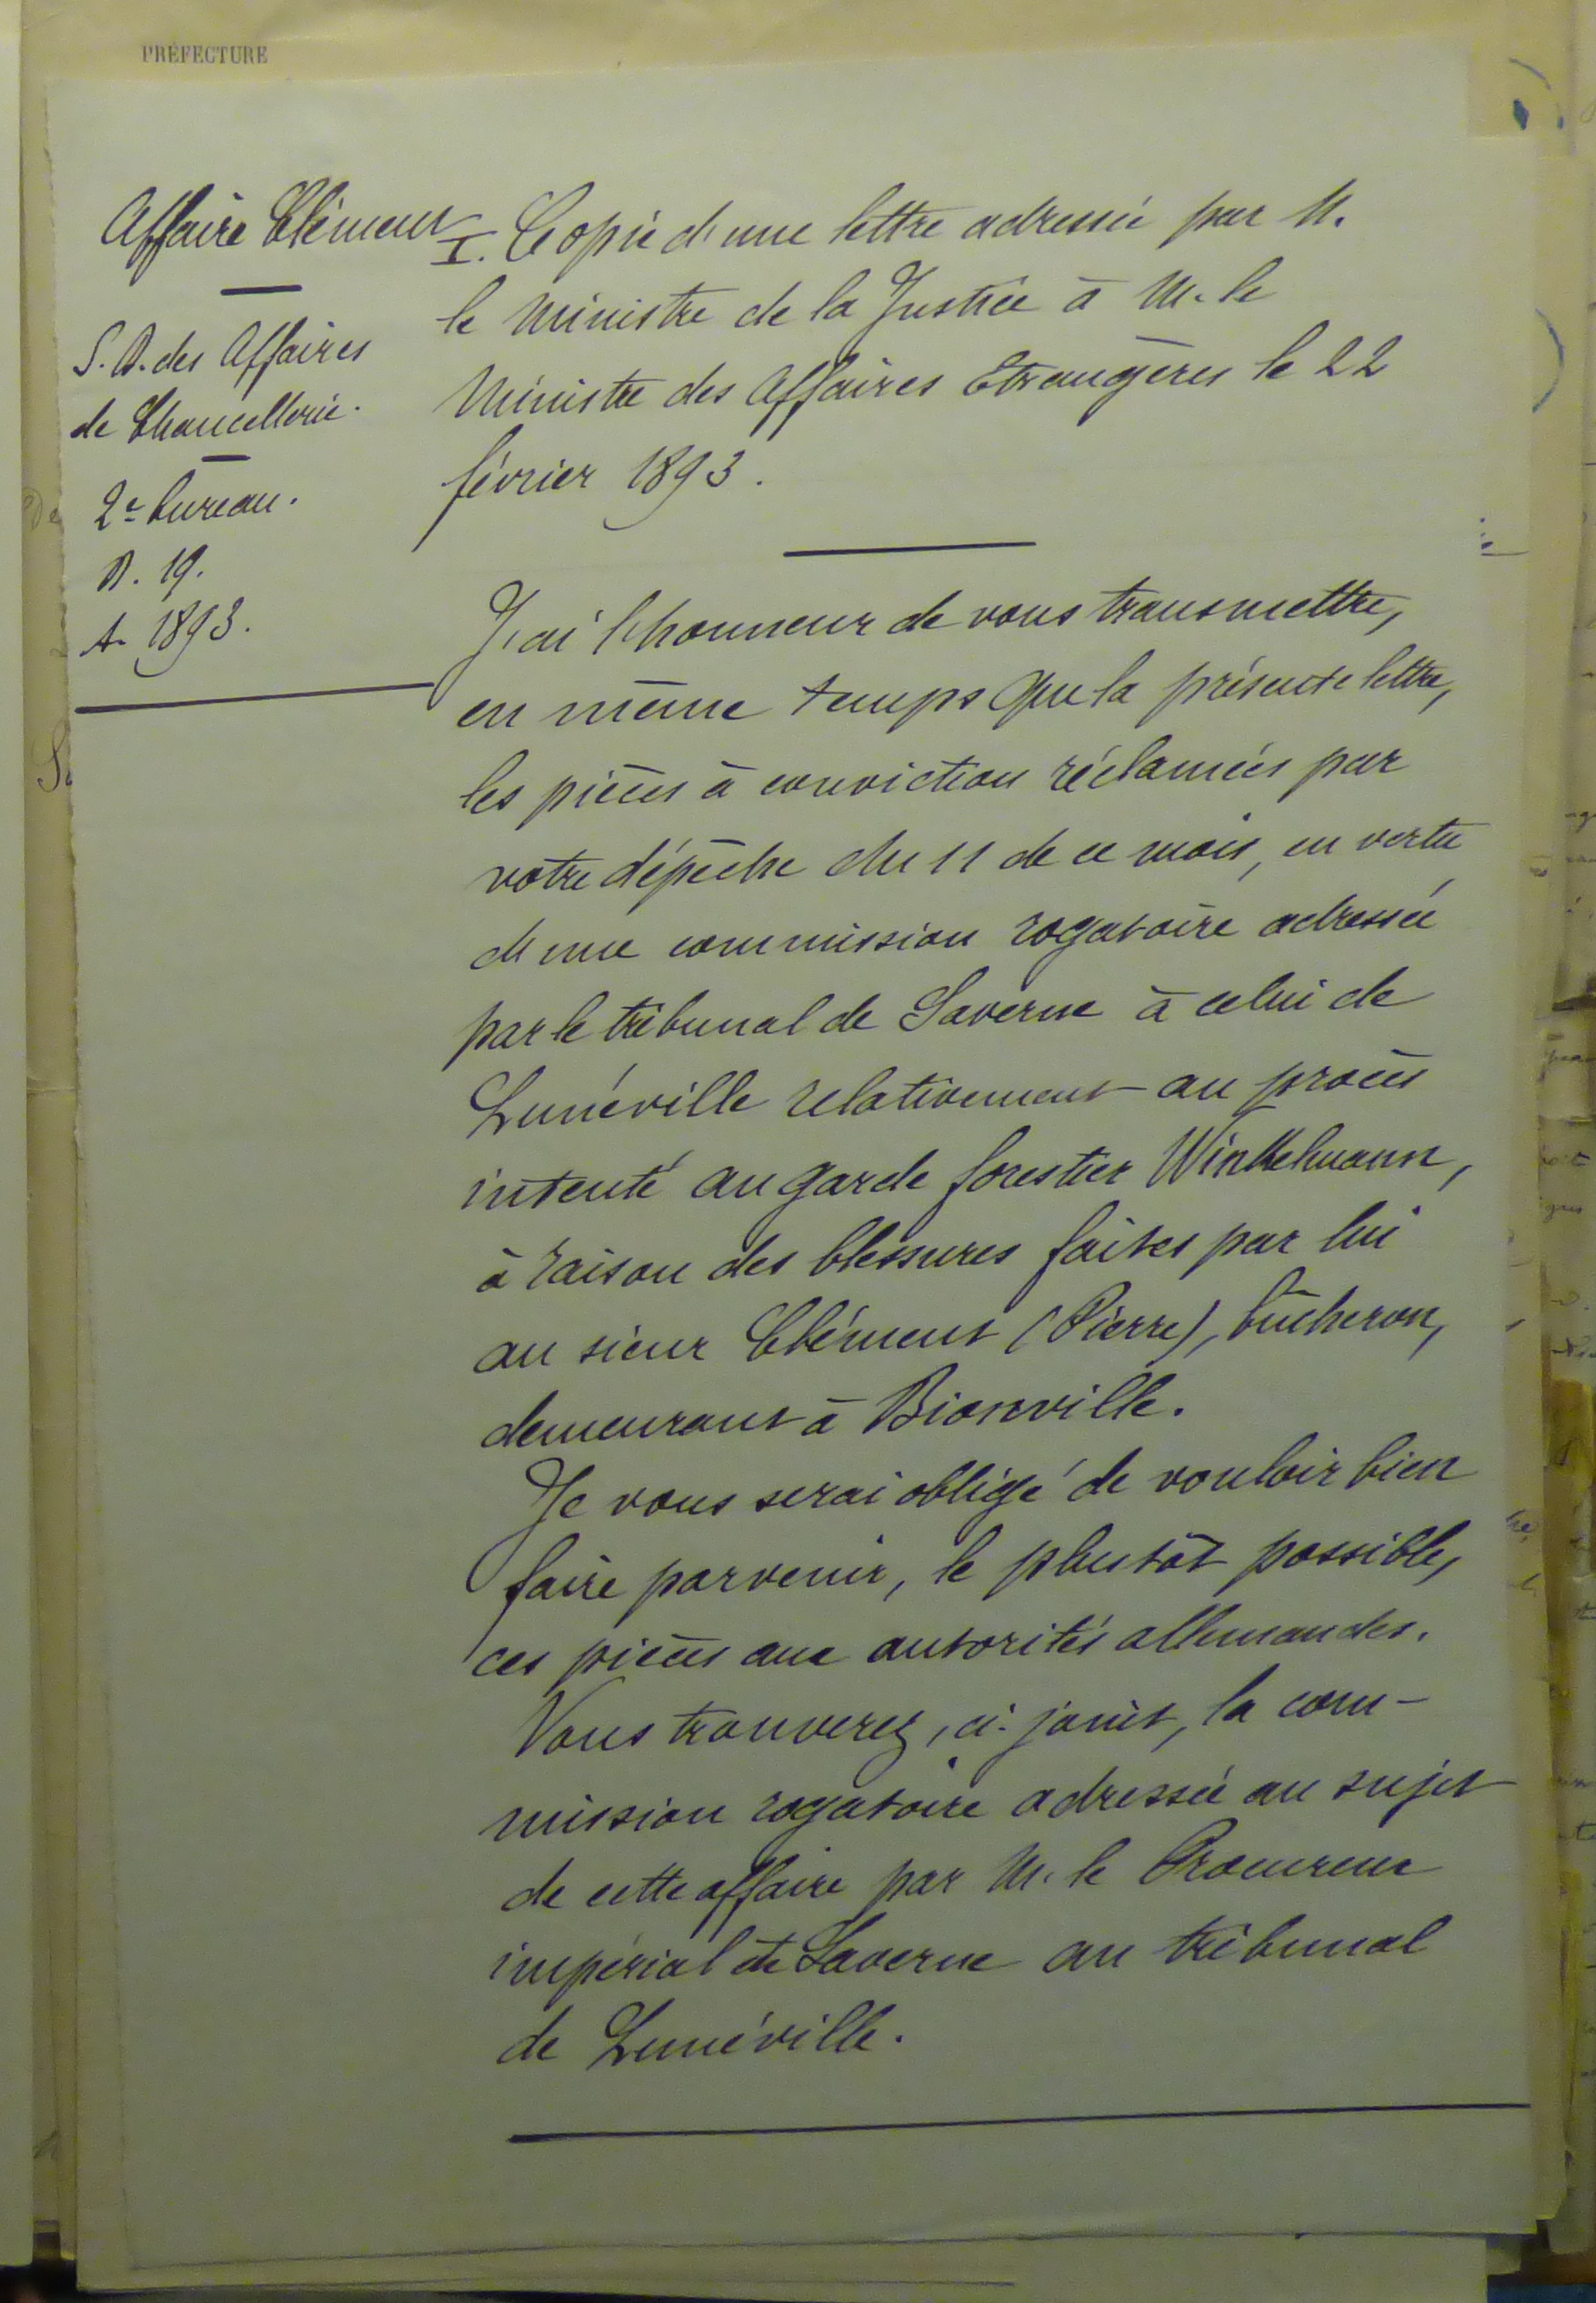 PRÉFECTURE
Affaire Clément
S. D. des Affaires
de Chancellerie.
2e bureau.
D. 19.
A. 1893.
I. Copie d'une lettre adressée par M.
le Ministre de la Justice à M. le
Ministre des Affaires Etrangères le 22
février 1893.
J'ai l'honneur de vous transmettre,
en même temps que la présente lettre,
les pièces à conviction réclamées par
votre dépêche du 11 de ce mois, en vertu
d'une commission rogatoire adressée
par le tribunal de Saverne à celui de
Lunéville relativement au procès
intenté au garde forestier Winkelmann,
à raison des blessures faites par lui
au sieur Clément (Pierre), bûcheron,
demeurant à Bionville.
Je vous serai obligé de vouloir bien
faire parvenir, le plutôt possible,
ces pièces aux autorités allemandes.
Vous trouverez, ci-joint, la com-
mission rogatoire adressée au sujet
de cette affaire par M. le Procureur
impérial de Saverne au tribunal
de Lunéville.